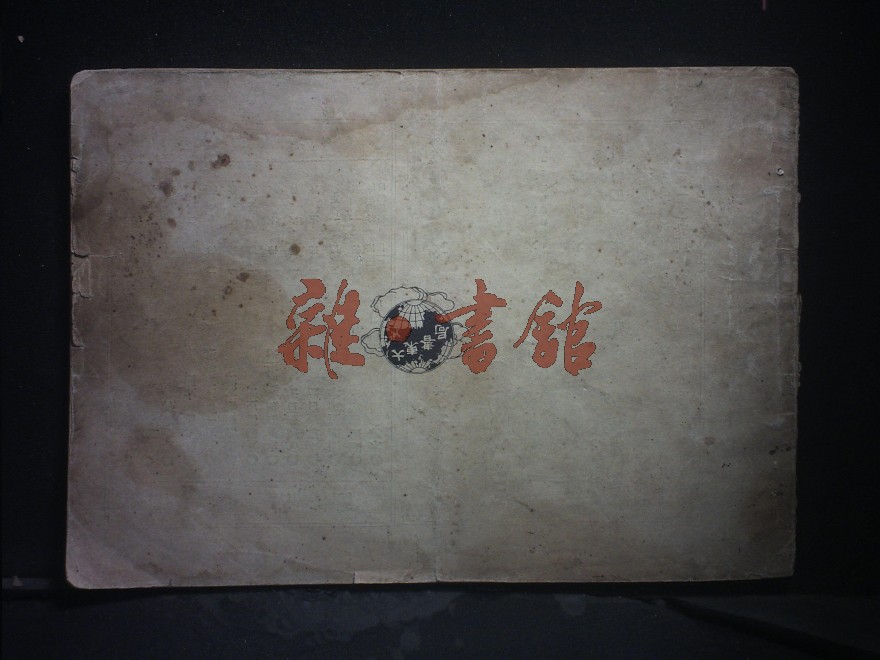 雜書館
大東書局